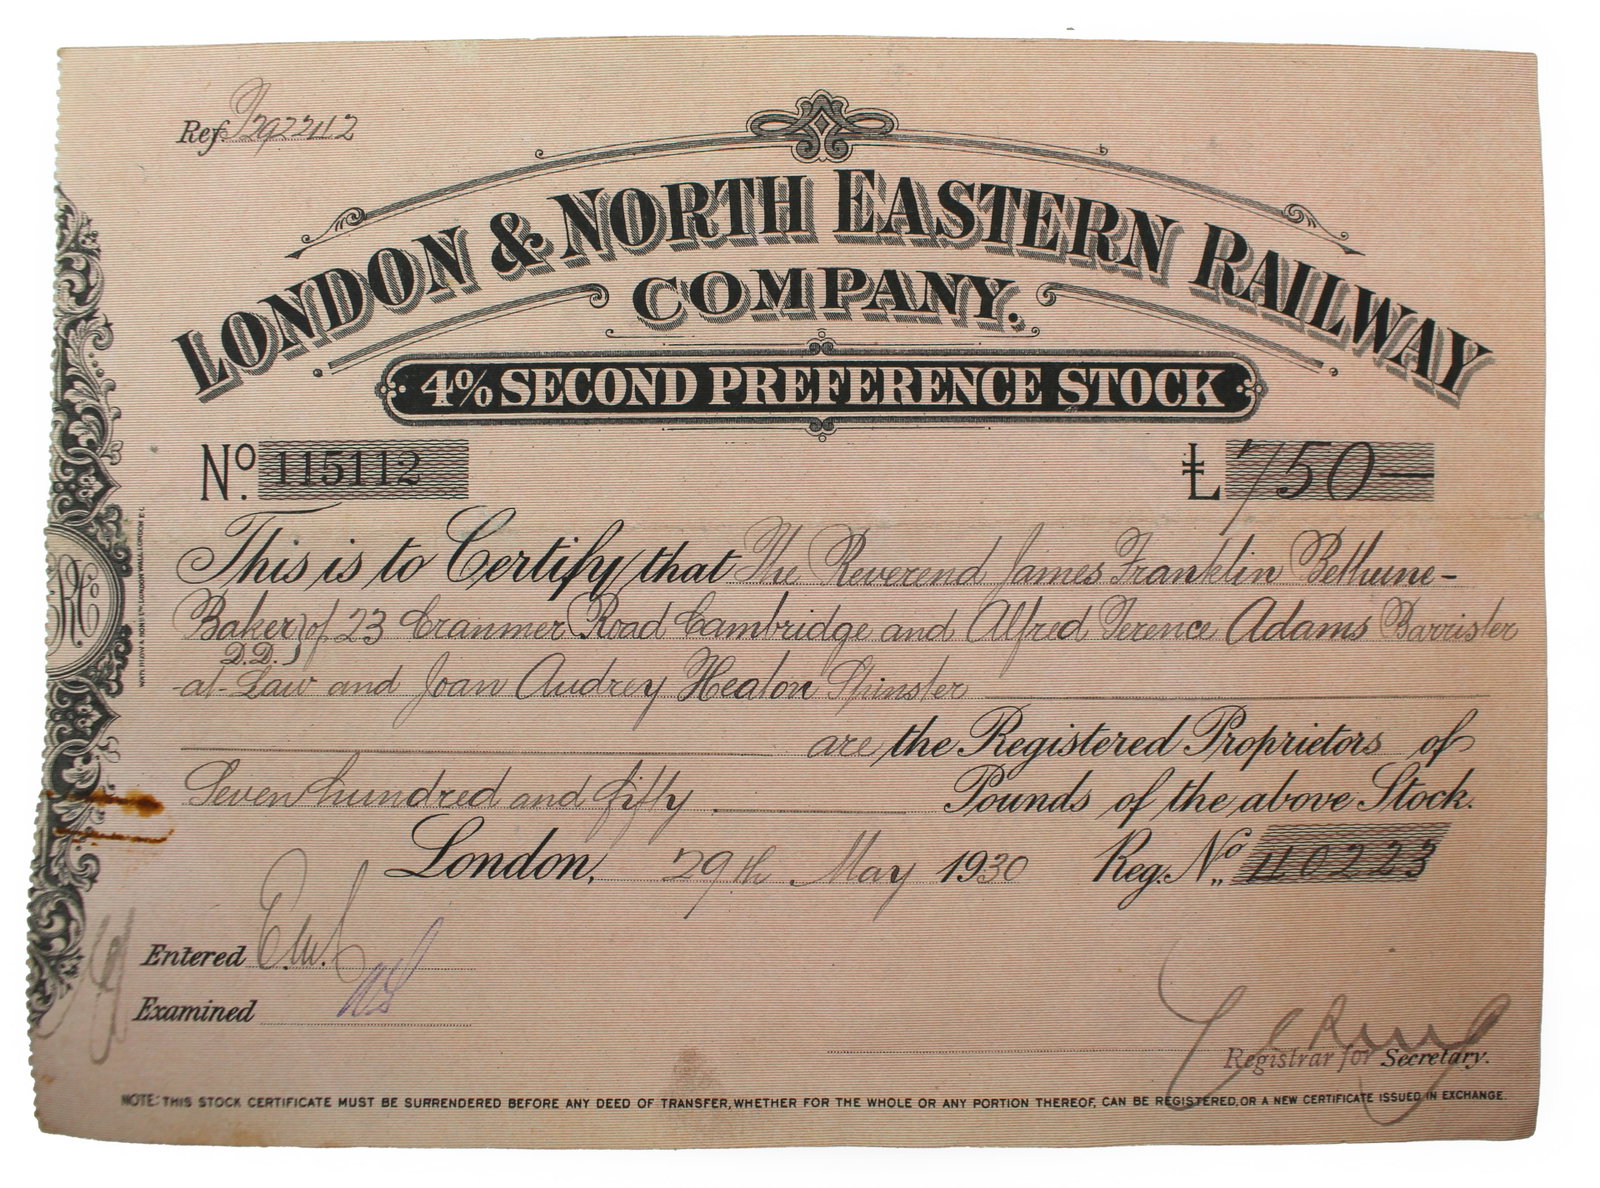 Ref. T292242
LONDON & NORTH EASTERN RAILWAY
COMPANY.
4% SECOND PREFERENCE STOCK
No. 115112
£ 750—
This is to Certify that The Reverend James Franklin Bethune-
Baker, of 23 Cranmer Road Cambridge and Alfred Terence Adams Barrister
D.D.
-at-Law and Joan Audrey Heaton Spinster
are the Registered Proprietors of
Seven hundred and fifty Pounds of the above Stock.
London, 29th May 1930 Reg. No. 110223
Entered
Examined
Registrar for Secretary.
NOTE: THIS STOCK CERTIFICATE MUST BE SURRENDERED BEFORE ANY DEED OF TRANSFER, WHETHER FOR THE WHOLE OR ANY PORTION THEREOF, CAN BE REGISTERED, OR A NEW CERTIFICATE ISSUED IN EXCHANGE.